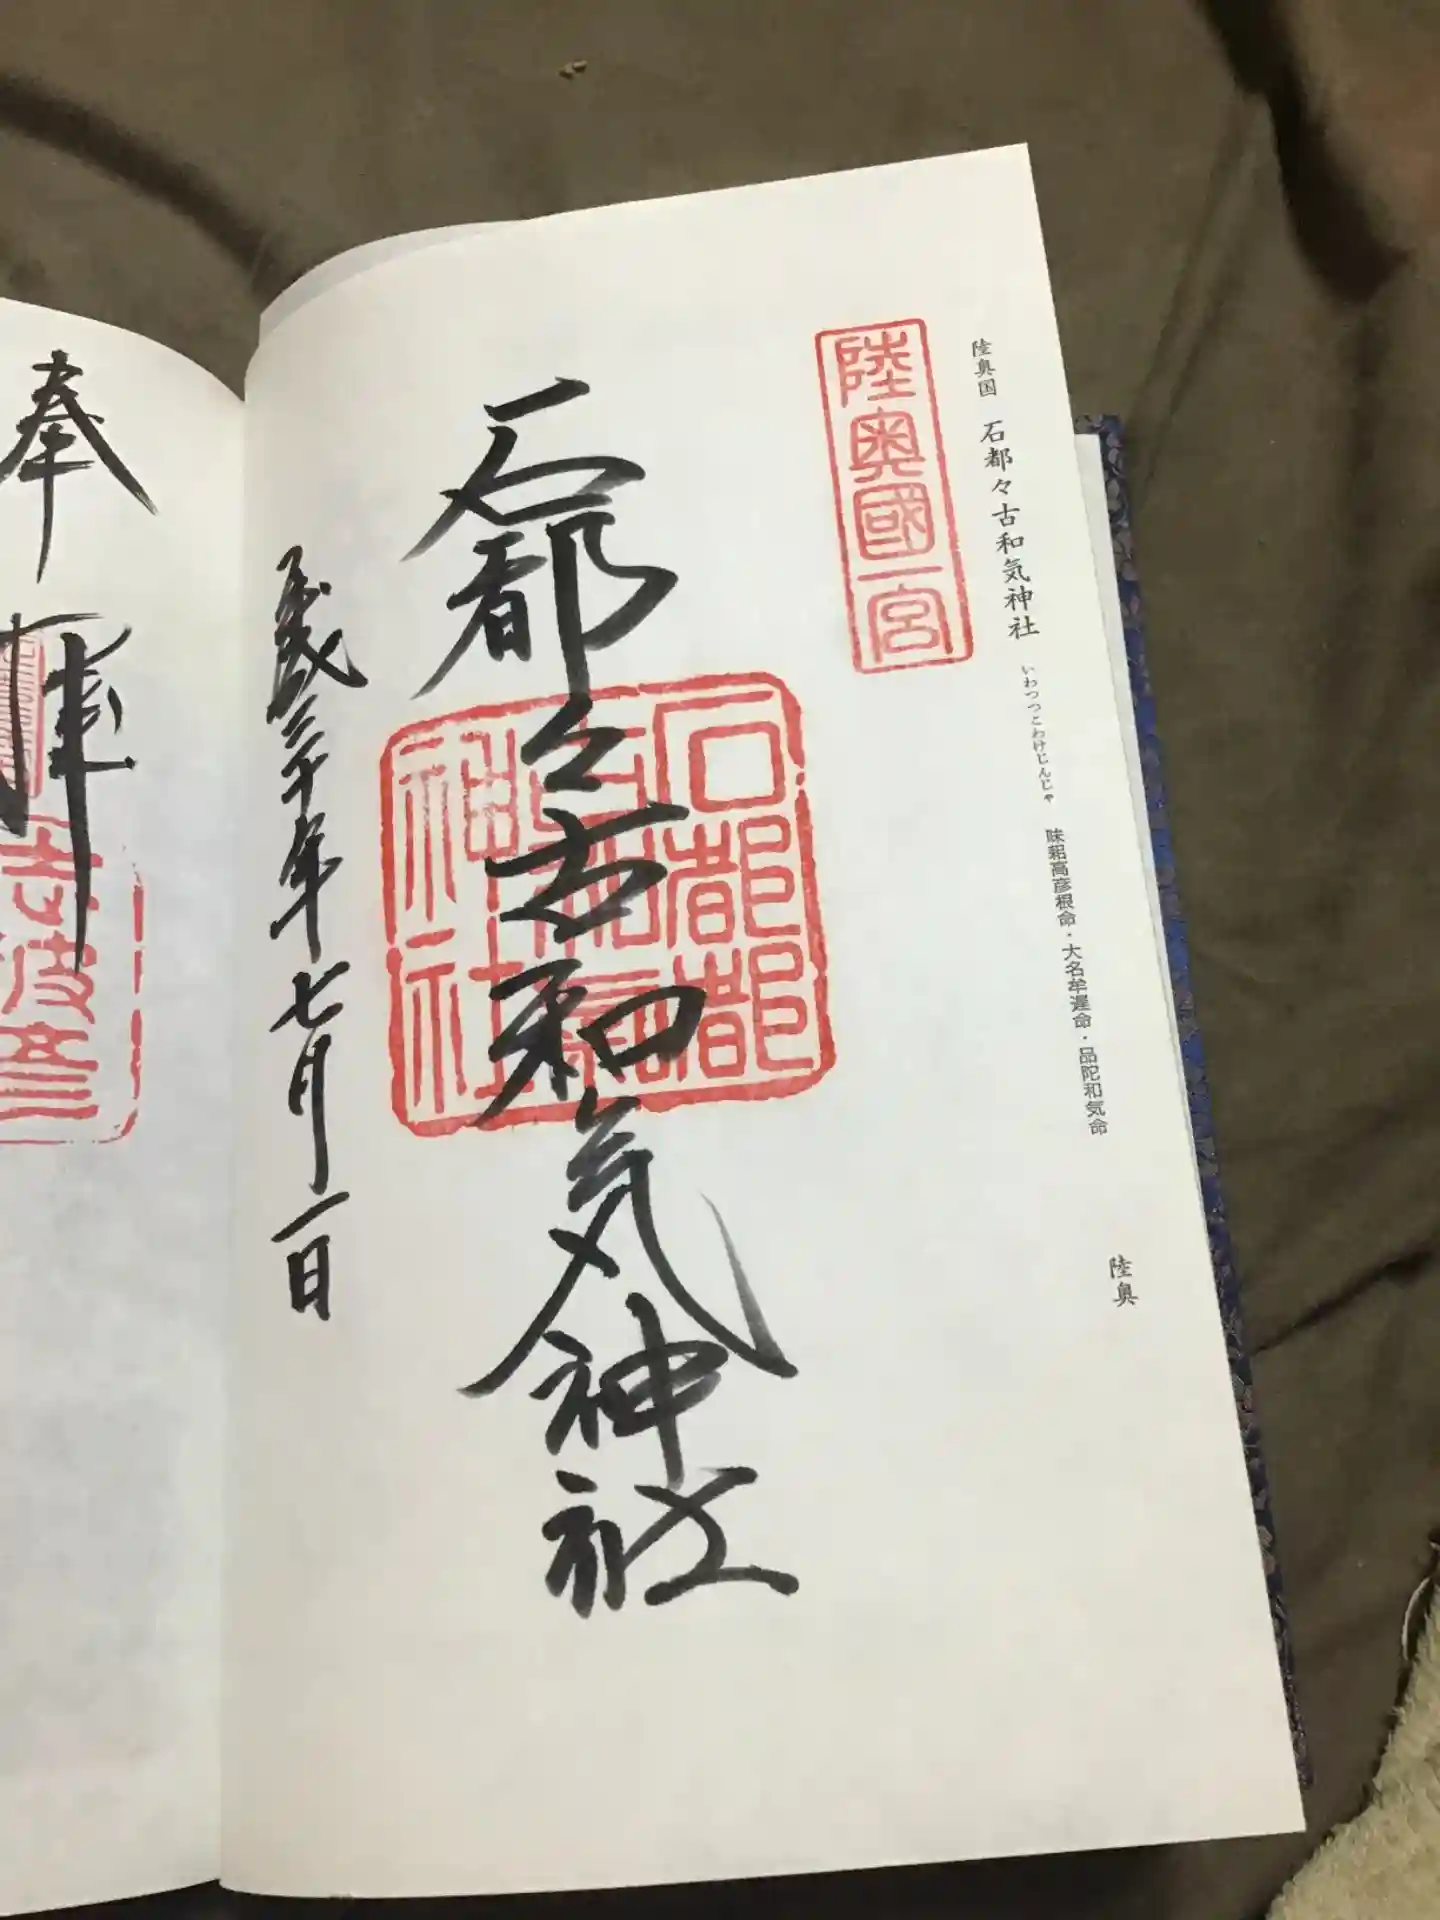 陸奥国 石都々古和気神社 いわつつこわけじんじゃ 味耜高彦根命・大名牟遅命・品陀和気命 陸奥
陸奥國一宮
石都々古和気神社
石都都
古和氣
神社
平成三十年七月一日
奉拝
志波彦